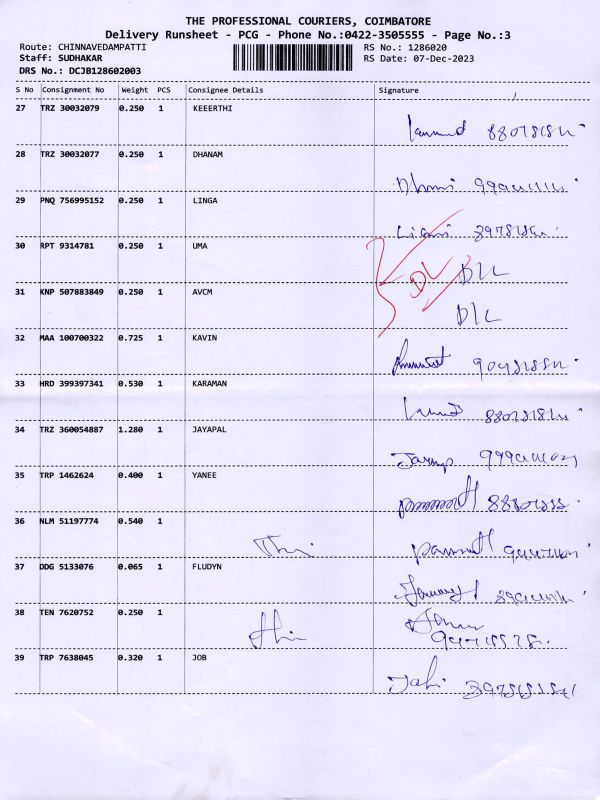 THE PROFESSIONAL COURIERS, COIMBATORE
Delivery Runsheet - PCG - Phone No.:0422-3505555 - Page No.:3
Route: CHINNAVEDAMPATTI
RS No.: 1286020
Staff: SUDHAKAR
RS Date: 07-Dec-2023
DRS No.: DCJB128602003
S No Consignment No Weight PCS Consignee Details Signature
27 TRZ 30032079 0.250 1 KEEERTHI
28 TRZ 30032077 0.250 1 DHANAM
29 PNQ 756995152 0.250 1 LINGA
30 RPT 9314781 0.250 1 UMA
DL
D/L
31 KNP 507883849 0.250 1 AVCM
D/L
32 MAA 100700322 0.725 1 KAVIN
33 HRD 399397341 0.530 1 KARAMAN
34 TRZ 360054887 1.280 1 JAYAPAL
35 TRP 1462624 0.400 1 YANEE
36 NLM 51197774 0.540 1
37 DDG 5133076 0.065 1 FLUDYN
38 TEN 7620752 0.250 1
39 TRP 7638045 0.320 1 JOB